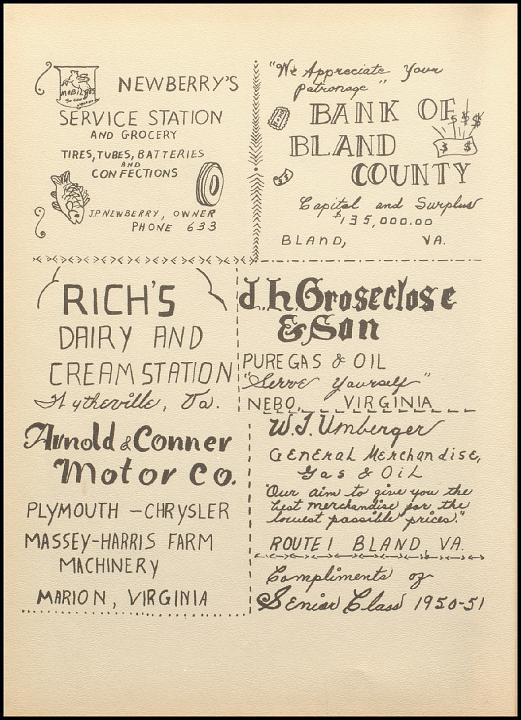 Mobilgas
NEWBERRY'S
SERVICE STATION
AND GROCERY
TIRES, TUBES, BATTERIES
AND
CONFECTIONS
J.P. NEWBERRY, OWNER
PHONE 633
"We Appreciate Your
Patronage"
BANK OF
BLAND
COUNTY
$ $ $
$ $
Capital and Surplus
$135,000.00
BLAND, VA.
RICH'S
DAIRY AND
CREAM STATION
Wytheville, Va.
J.h. Groseclose
& Son
PURE GAS & OIL
"Serve Yourself"
NEBO, VIRGINIA
Arnold & Conner
Motor Co.
PLYMOUTH - CHRYSLER
MASSEY-HARRIS FARM
MACHINERY
MARION, VIRGINIA
W.J. Umberger
General Merchandise,
Gas & Oil
"Our aim to give you the
best merchandise for the
lowest possible prices."
ROUTE 1 BLAND, VA.
Compliments of
Senior Class 1950-51